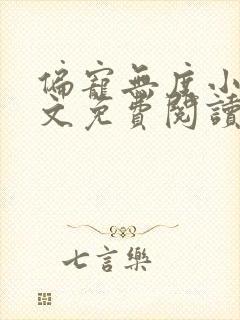 偏寵無度小
文免費閱讀
七言樂